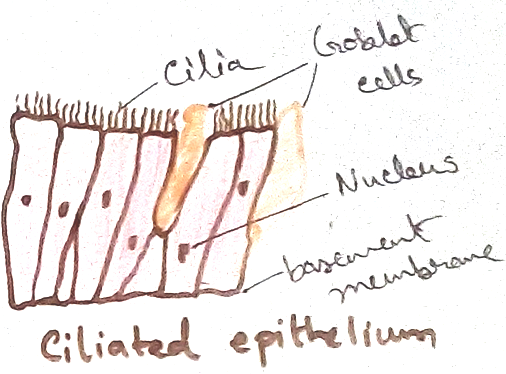 Cilia
Goblet
cells
Nucleus
basement
membrane
Ciliated epithelium